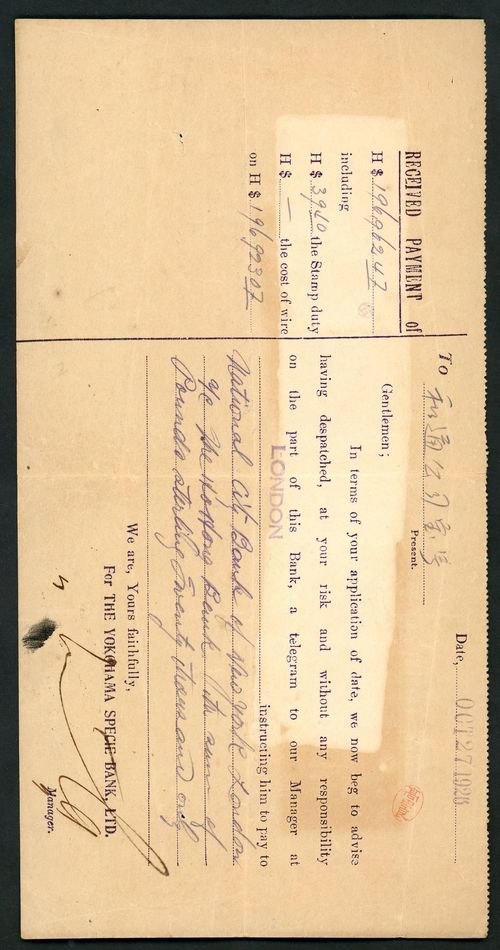 Date, OCT 27
To 公司寶號
Present.
Gentlemen;
In terms of your application of date, we now beg to advise
having despatched, at your risk and without any responsibility
on the part of this Bank, a telegram to our Manager at
LONDON
instructing him to pay to
National City Bank of New York London
a/c The Bank the sum of
Pounds sterling Twenty thousand only
We are, Yours faithfully,
For THE YOKOHAMA SPECIE BANK, LTD.
Manager.
RECEIVED PAYMENT of
H $ 196962 47
including
H $ 39 40 the Stamp duty
H $ — the cost of wire
on H $ 196923 07